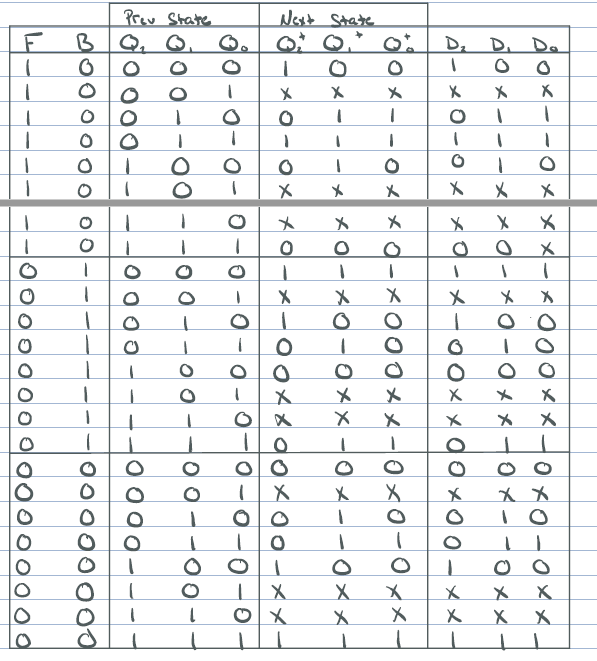 Prev State Next State
F B Q₂ Q₁ Q₀ Q₂⁺ Q₁⁺ Q₀⁺ D₂ D₁ D₀
1 0 0 0 0 1 0 0 1 0 0
1 0 0 0 1 x x x x x x
1 0 0 1 0 0 1 1 0 1 1
1 0 0 1 1 1 1 1 1 1 1
1 0 1 0 0 0 1 0 0 1 0
1 0 1 0 1 x x x x x x
1 0 1 1 0 x x x x x x
1 0 1 1 1 0 0 0 0 0 x
0 1 0 0 0 1 1 1 1 1 1
0 1 0 0 1 x x x x x x
0 1 0 1 0 1 0 0 1 0 0
0 1 0 1 1 0 1 0 0 1 0
0 1 1 0 0 0 0 0 0 0 0
0 1 1 0 1 x x x x x x
0 1 1 1 0 x x x x x x
0 1 1 1 1 0 1 1 0 1 1
0 0 0 0 0 0 0 0 0 0 0
0 0 0 0 1 x x x x x x
0 0 0 1 0 0 1 0 0 1 0
0 0 0 1 1 0 1 1 0 1 1
0 0 1 0 0 1 0 0 1 0 0
0 0 1 0 1 x x x x x x
0 0 1 1 0 x x x x x x
0 0 1 1 1 1 1 1 1 1 1